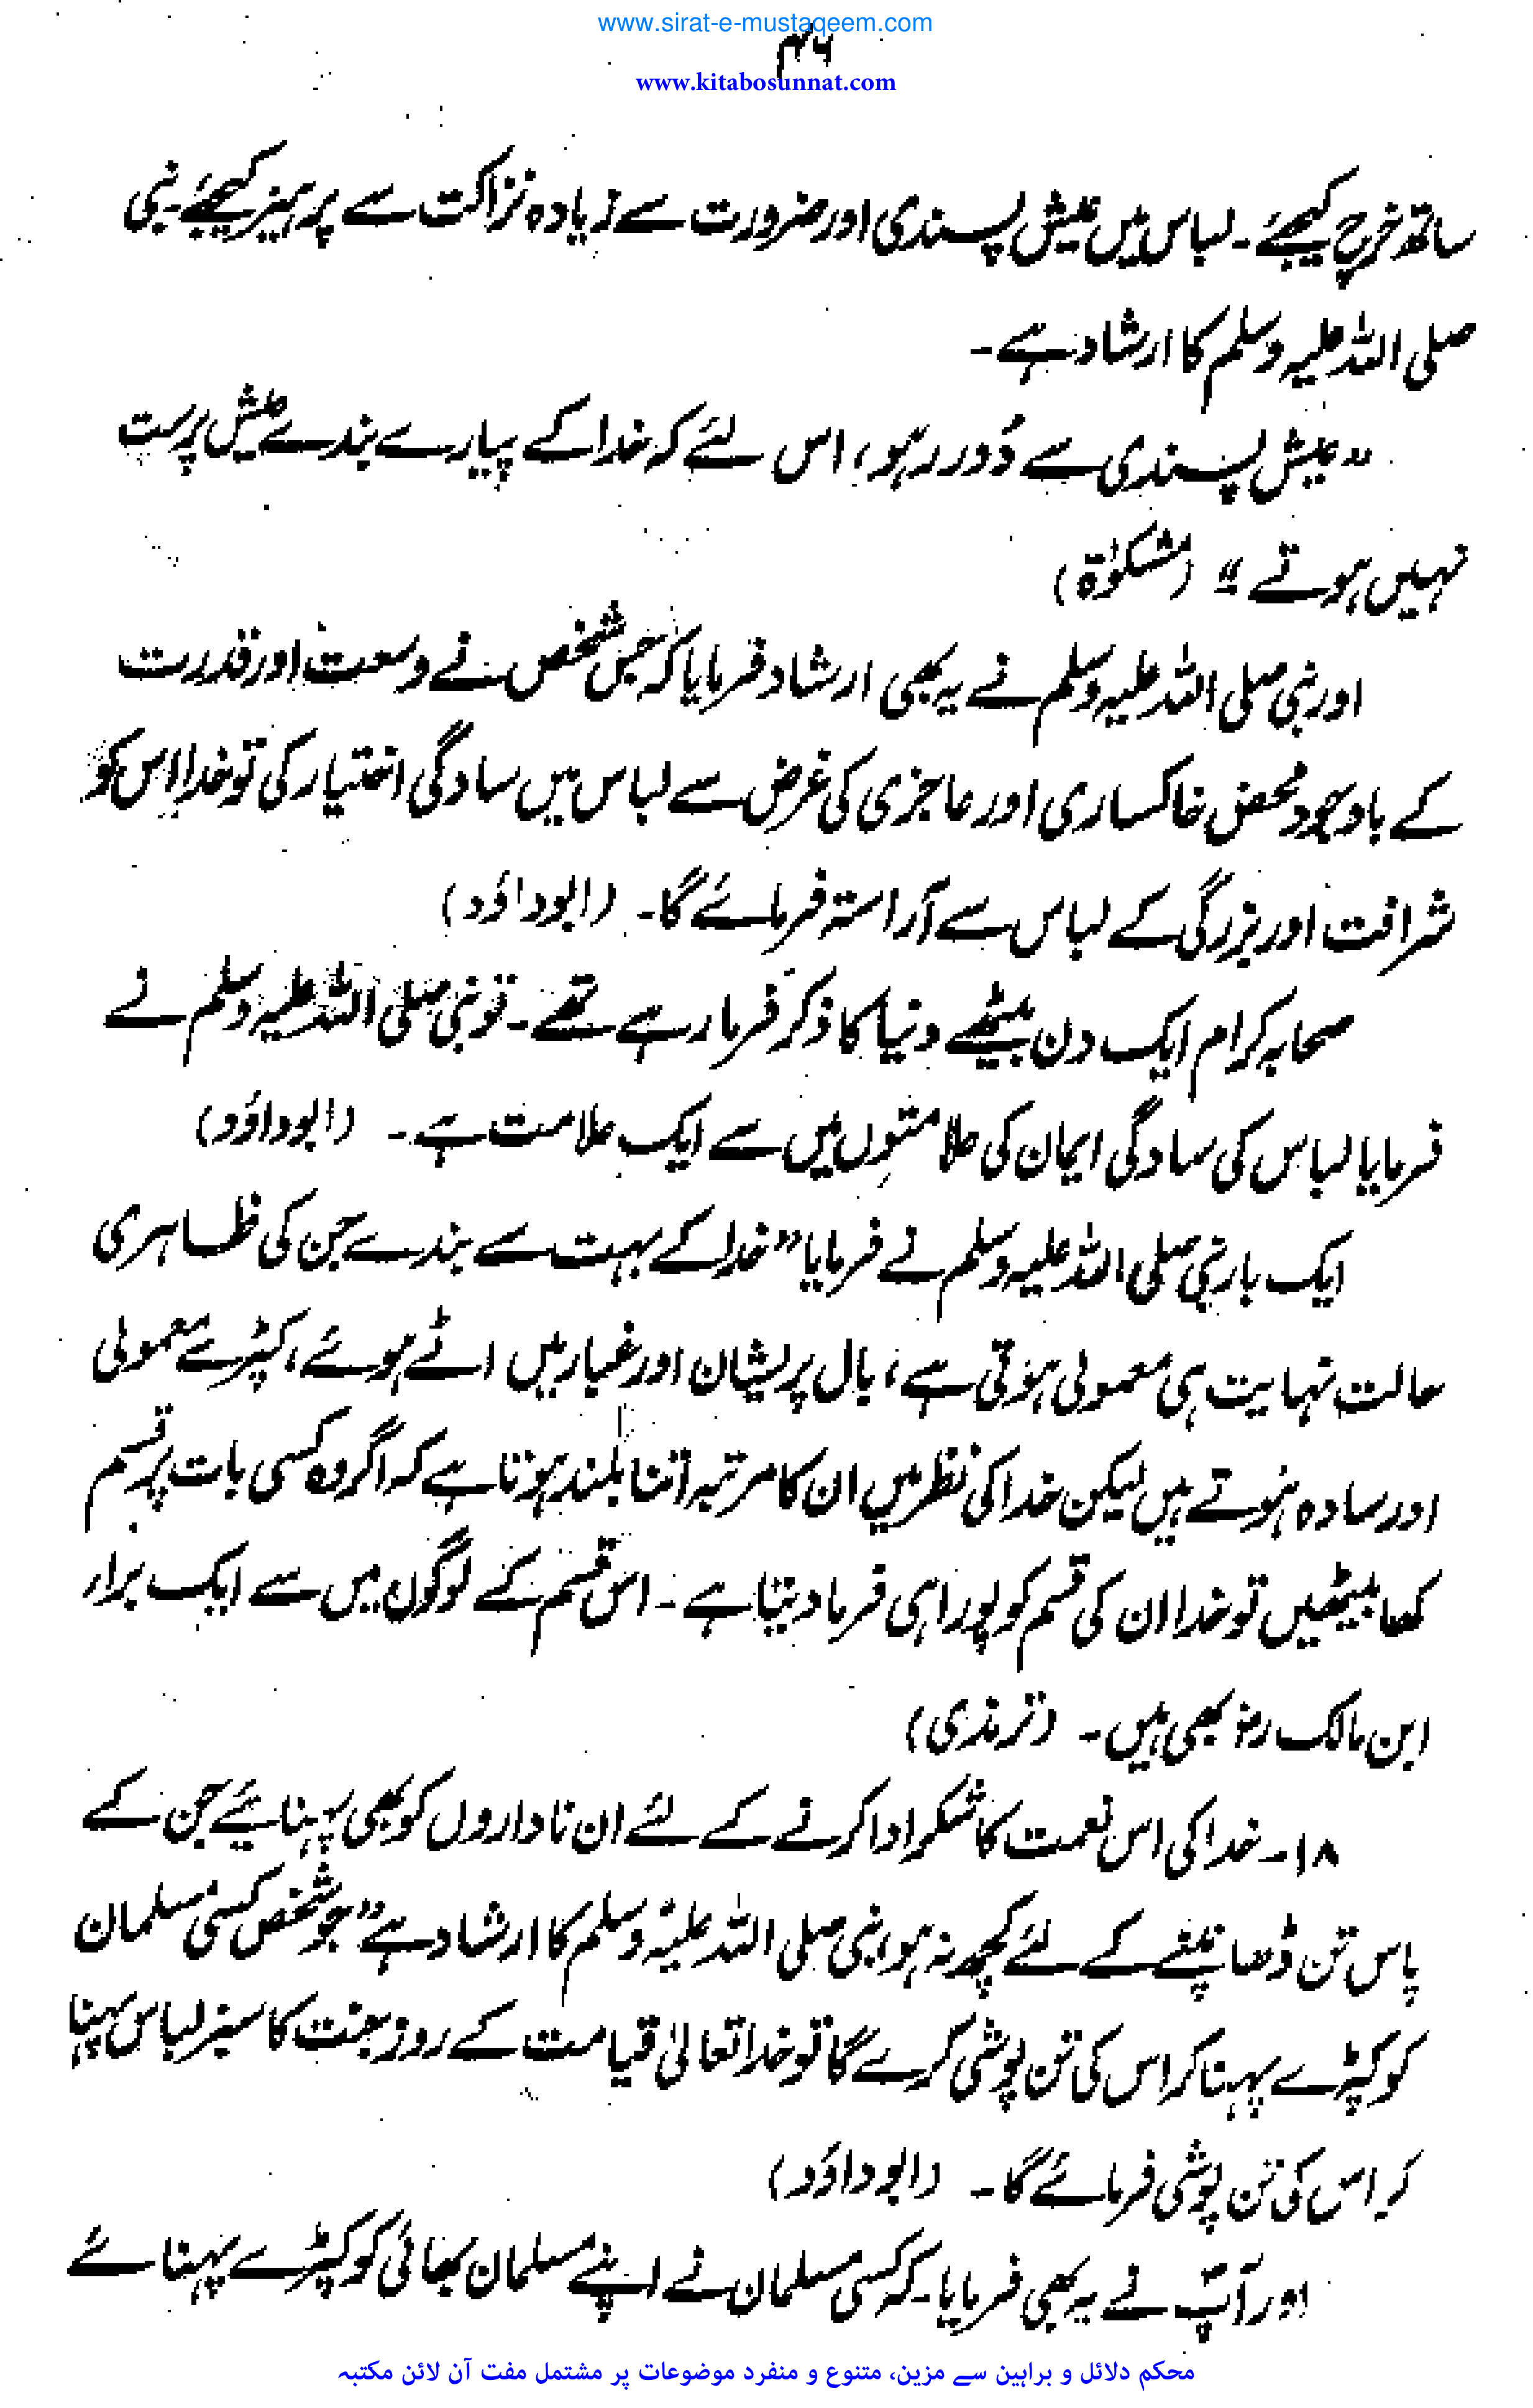 www.sirat-e-mustaqeem.com
۴۶
www.kitabosunnat.com
ساتھ خرچ کیجئے۔ لباس میں عیش پسندی اور ضرورت سے زیادہ نزاکت سے پرہیز کیجئے۔ نبی
صلی اللہ علیہ وسلم کا ارشاد ہے۔
"عیش پسندی سے دُور رہو، اس لئے کہ خدا کے پیارے بندے عیش پرست
نہیں ہوتے" (مشکوٰۃ)
اور نبی صلی اللہ علیہ وسلم نے یہ بھی ارشاد فرمایا کہ جس شخص نے وسعت اور قدرت
کے باوجود محض خاکساری اور عاجزی کی غرض سے لباس میں سادگی اختیار کی تو خدا اس کو
شرافت اور بزرگی کے لباس سے آراستہ فرمائے گا۔ (ابوداؤد)
صحابہ کرام ایک دن بیٹھے دنیا کا ذکر فرما رہے تھے۔ تو نبی صلی اللہ علیہ وسلم نے
فرمایا لباس کی سادگی ایمان کی علامتوں میں سے ایک علامت ہے۔ (ابوداؤد)
ایک بار نبی صلی اللہ علیہ وسلم نے فرمایا "خدا کے بہت سے بندے جن کی ظاہری
حالت نہایت ہی معمولی ہوتی ہے، بال پریشان اور غبار میں اٹے ہوئے، کپڑے معمولی
اور سادہ ہوتے ہیں لیکن خدا کی نظر میں ان کا مرتبہ اتنا بلند ہوتا ہے کہ اگر وہ کسی بات پر قسم
کھا بیٹھیں تو خدا ان کی قسم کو پورا ہی فرما دیتا ہے۔ اس قسم کے لوگوں میں سے ایک براء
ابن مالک رضؓ بھی ہیں۔ (ترمذی)
۱۸۔ خدا کی اس نعمت کا شکر ادا کرنے کے لئے ان ناداروں کو بھی پہنائیے جن کے
پاس تن ڈھانپنے کے لئے کچھ نہ ہو، نبی صلی اللہ علیہ وسلم کا ارشاد ہے "جو شخص کسی مسلمان
کو کپڑے پہنا کر اس کی تن پوشی کرے گا تو خدا تعالیٰ قیامت کے روز جنت کا سبز لباس پہنا
کر اس کی تن پوشی فرمائے گا۔ (ابوداؤد)
اور آپؐ نے یہ بھی فرمایا۔ کہ کسی مسلمان نے اپنے مسلمان بھائی کو کپڑے پہنائے
محکم دلائل و براہین سے مزین، متنوع و منفرد موضوعات پر مشتمل مفت آن لائن مکتبہ